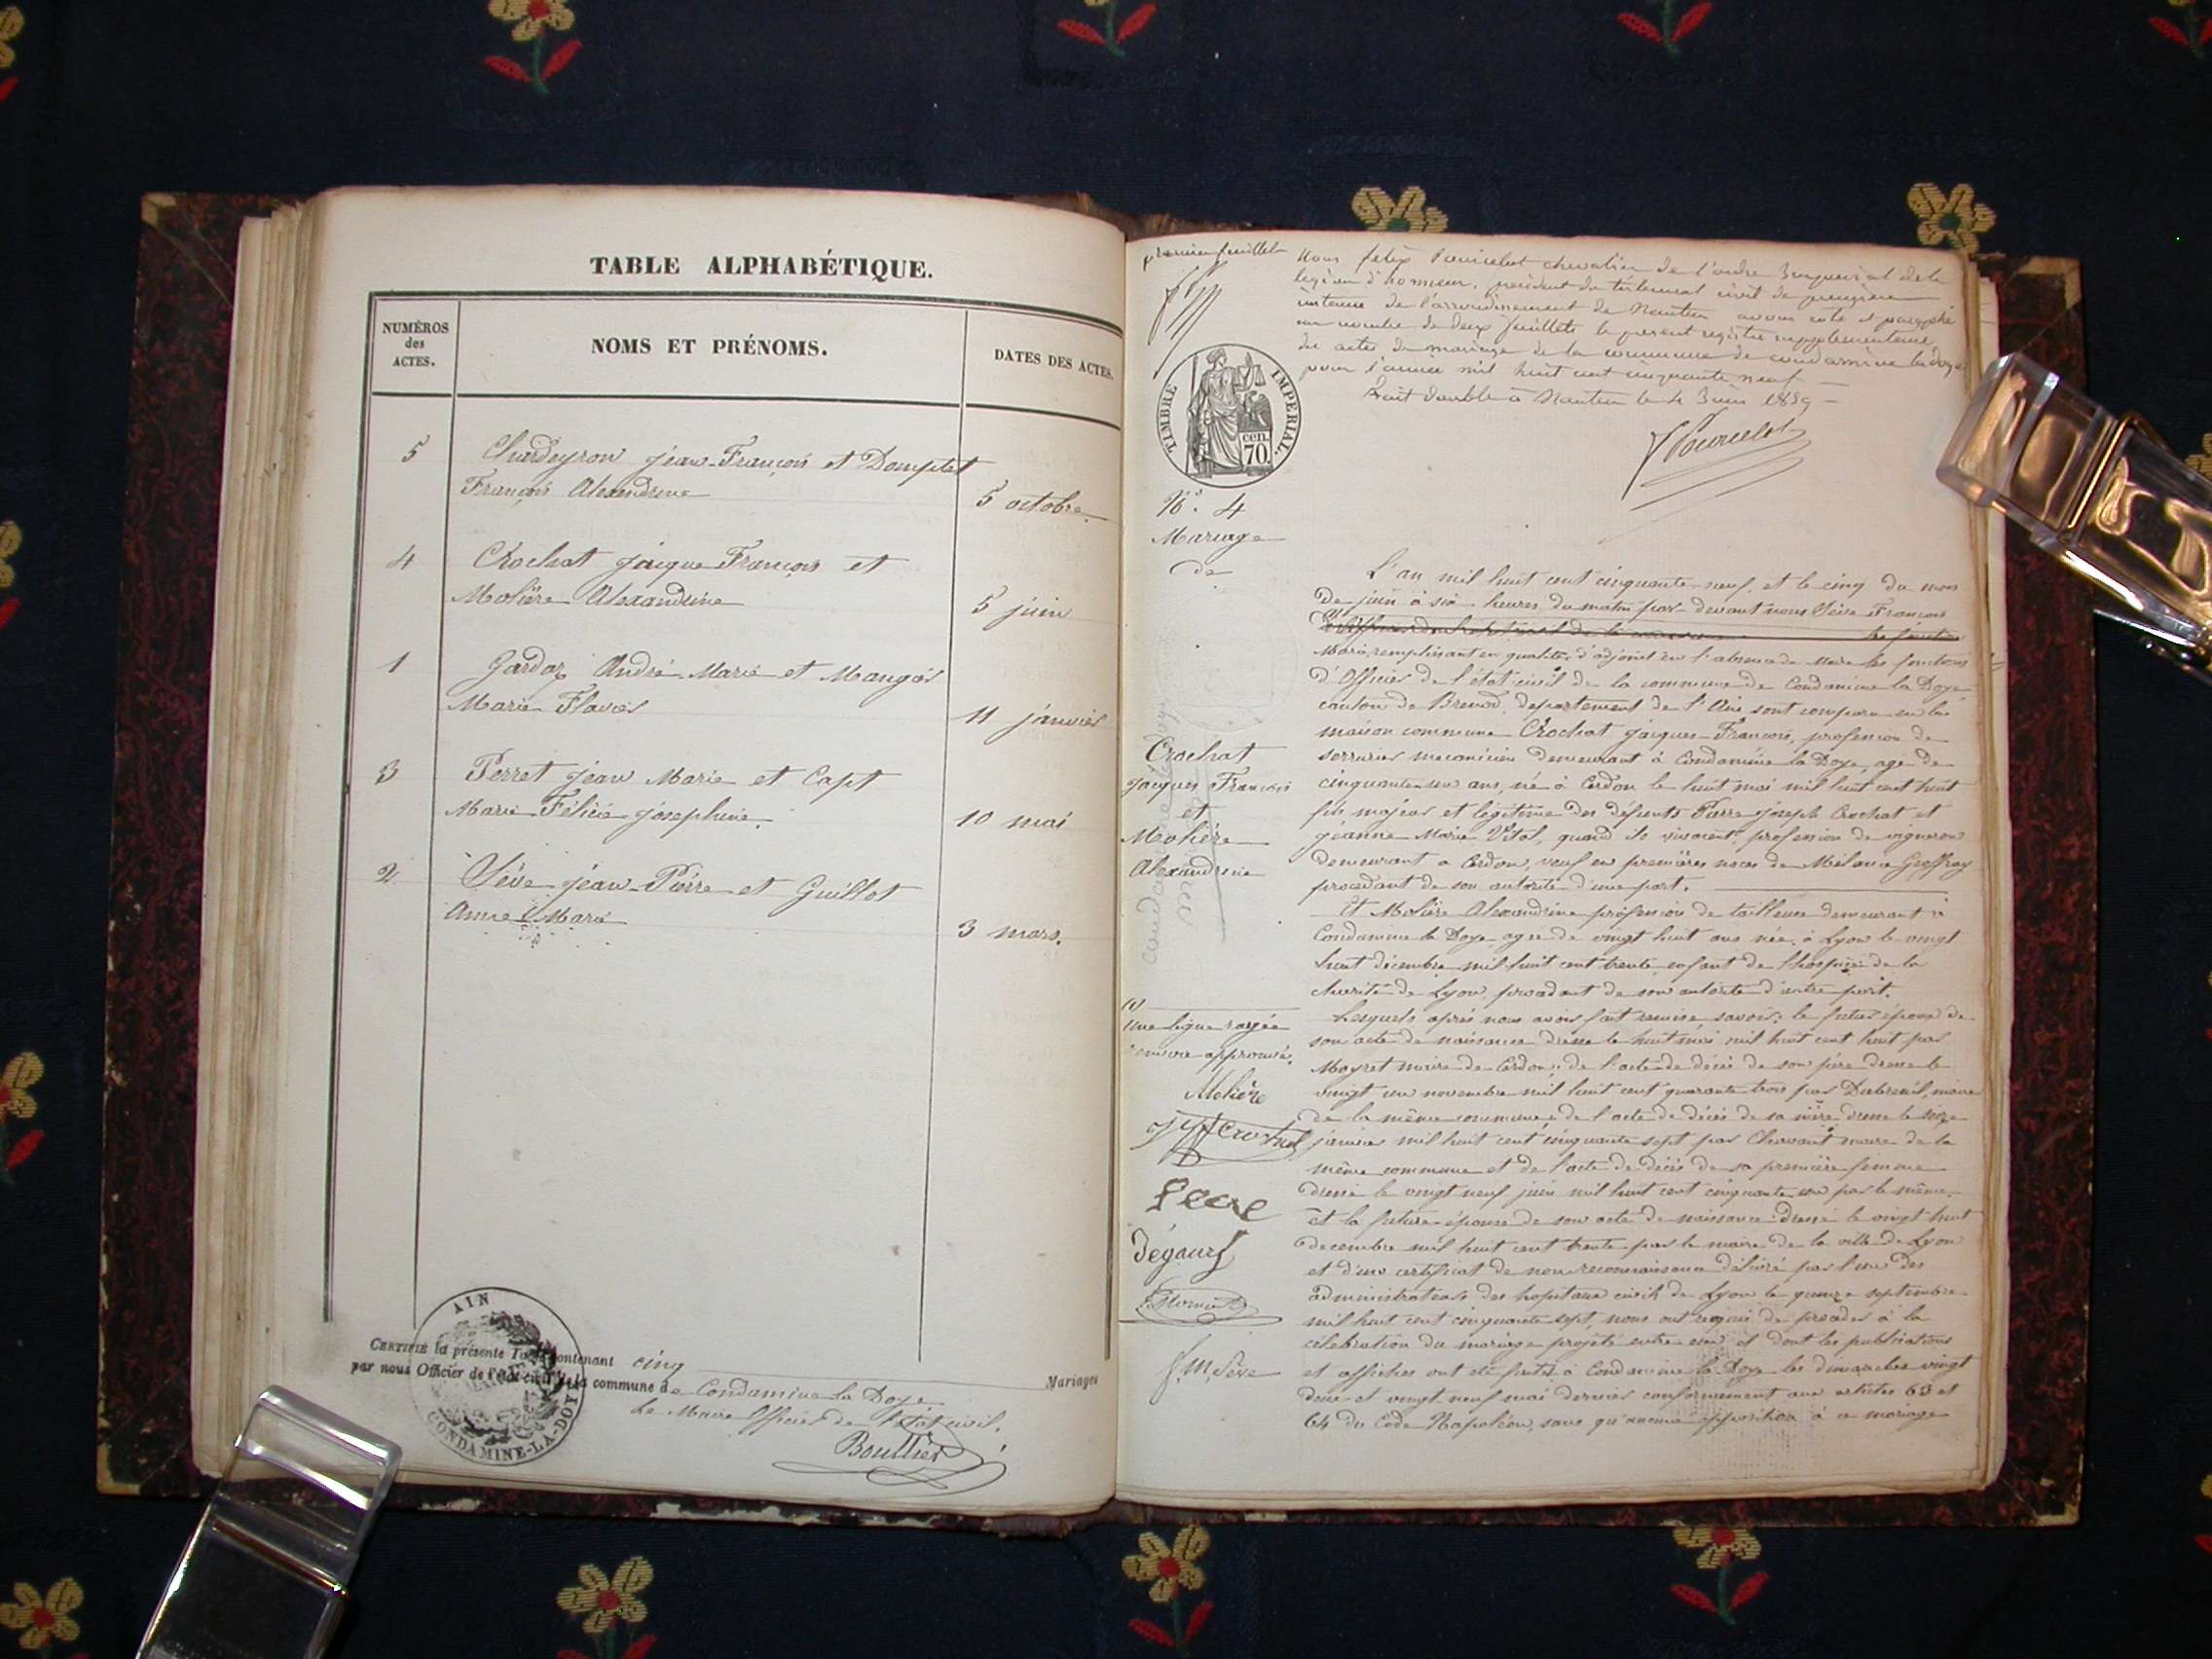 TABLE ALPHABÉTIQUE.
NUMÉROS
des
ACTES.
NOMS ET PRÉNOMS.
DATES DES ACTES.
5
Chardeyron jean-François et Domplet
François Alexandrine
5 octobre
4
Crochat jacque François et
Molière Alexandrine
5 juin
1
Gardaz André Marie et
Marie
11 janvier
3
Perret jean Marie et Capt
Marie Félicie joséphine.
10 mai
2
Sève jean-Pierre et Guillot
Anne Marie
3 mars.
AIN
CONDAMINE-LA-DOYE
CERTIFIÉ la présente Table contenant cinq Mariages
par nous Officier de l'état civil de la commune de Condamine la Doye
Le Maire Officier de l'état civil.
Boullier
premier feuillet
Nous felix Pourcelot chevalier de l'ordre Imperial de la
legion d'honneur, président du tribunal civil de premiere
instance de l'arrondissement de Nantua avons coté et paraphé
au nombre de deux feuillets le present registre supplementaire
des actes de mariage de la commune de condamine la doye
pour l'année mil huit cent cinquante neuf
Fait double à Nantua le 4 Juin 1859
F Pourcelot
TIMBRE IMPERIAL
cen. 70
N°. 4
Mariage
de
Crochat
jacques François
et
Molière
Alexandrine
L'an mil huit cent cinquante-neuf et le cinq du mois
de juin à six heures du matin par devant nous Sève François
Marie remplissant en qualité d'adjoint en l'absence du Maire les fonctions
d'Officier de l'état-civil de la commune de Condamine la Doye
canton de Brenod, département de l'Ain sont comparu en la
maison commune Crochat jacques-François, profession de
serrurier mecanicien demeurant à Condamine la Doye, age de
cinquante un ans, né à Cerdon le huit mai mil huit cent huit
fils majeur et légitime des défunts Pierre joseph Crochat et
jeanne Marie Vital, quand ils vivaient, profession de vigneron
demeurant a Cerdon, veuf en premières noces de Mélanie Geoffray
procedant de son autorité d'une part.
Et Molière Alexandrine profession de tailleuse demeurant à
Condamine la Doye agee de vingt huit ans née à Lyon le vingt
huit décembre mil huit cent trente enfant de l'hospice de la
charité de Lyon, procedant de son autorité d'autre part.
Lesquels après nous avoir fait remise, savoir: le futur époux de
son acte de naissance dressé le huit mai mil huit cent huit par
Moyret maire de Cerdon; de l'acte de décès de son père dressé le
vingt un novembre mil huit cent quarante trois par Dubreuil, maire
de la même commune, de l'acte de décès de sa mère dressé le seize
janvier mil huit cent cinquante sept par Chavant maire de la
même commune et de l'acte de décès de sa première femme
dressé le vingt neuf juin mil huit cent cinquante un par le même.
et la future épouse de son acte de naissance dressé le vingt huit
decembre mil huit cent trente par le maire de la ville de Lyon
et d'un certificat de non reconnaissance délivré par l'un des
administrateurs des hopitaux civils de Lyon le quinze septembre
mil huit cent cinquante sept, nous ont requis de procéder à la
célébration du mariage projeté entre eux et dont les publications
et affiches ont été faites à Condamine la Doye les dimanches vingt
deux et vingt neuf mai dernier conformément aux articles 63 et
64 du Code Napoléon, sans qu'aucune opposition à ce mariage
(1)
Une ligne rayée
renvoi approuvé.
Molière
Crochat
Sève
Dégours
f. M. Sève